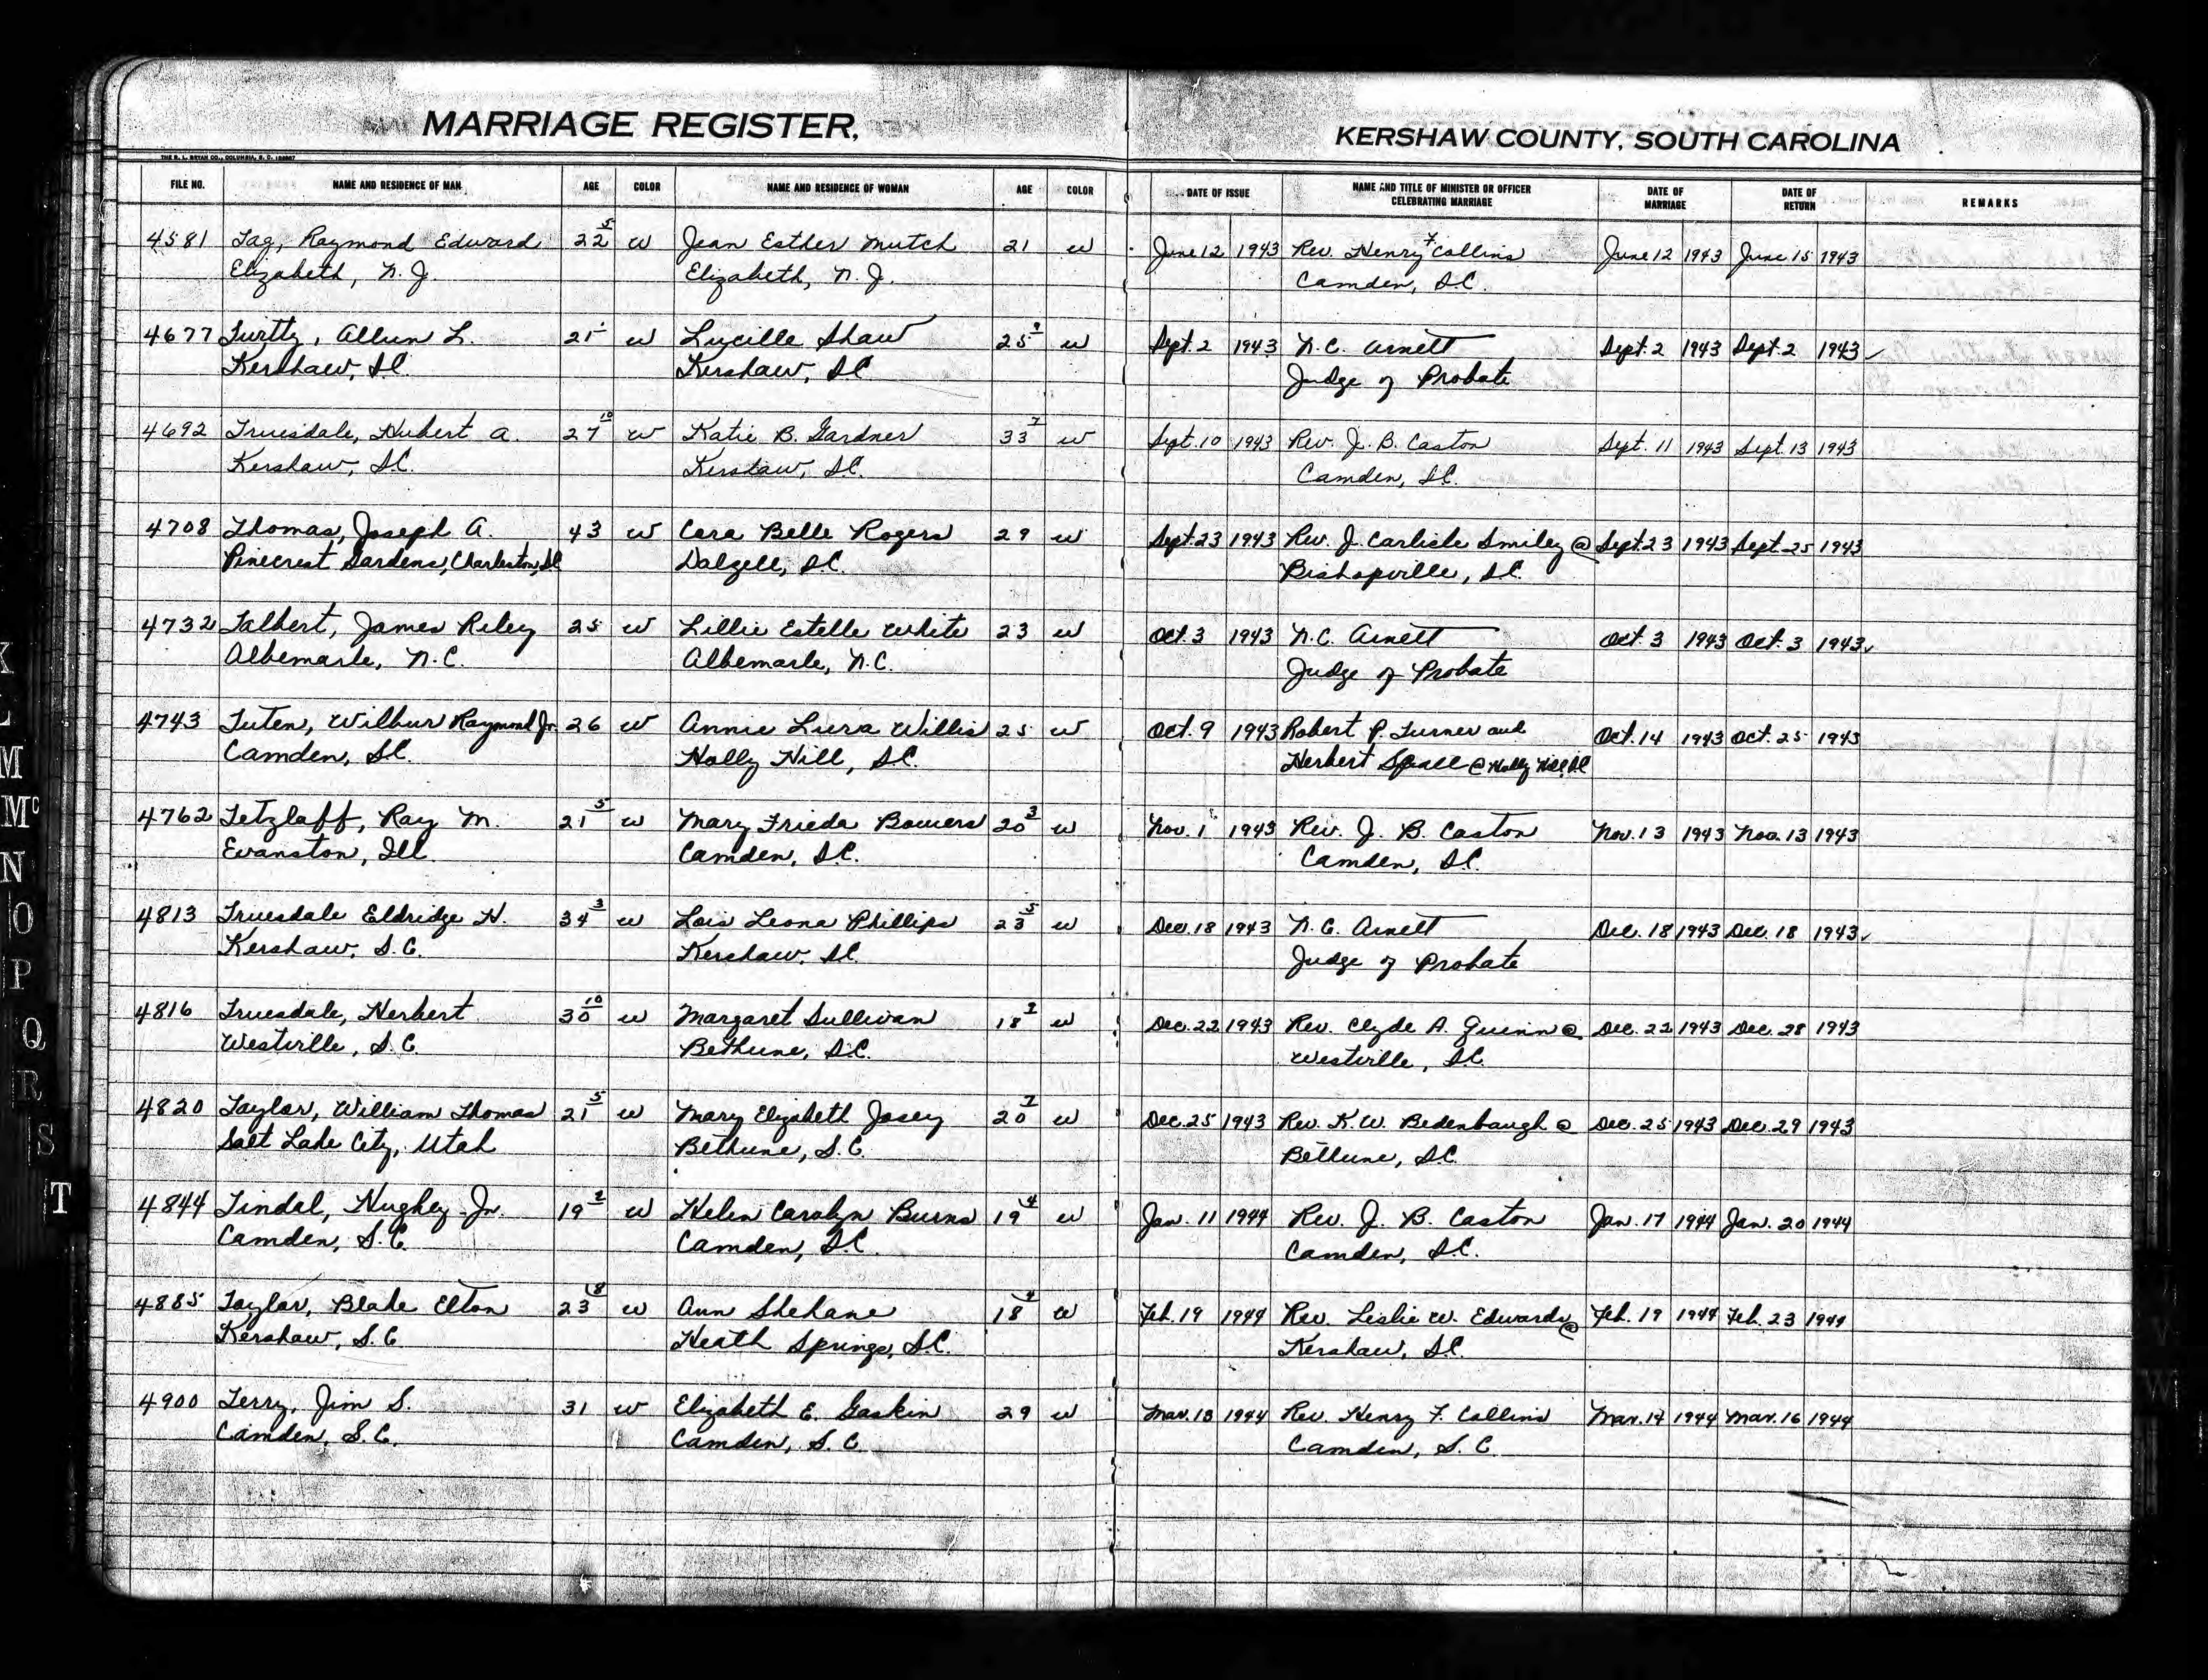 MARRIAGE REGISTER,
KERSHAW COUNTY, SOUTH CAROLINA
THE R. L. BRYAN CO., COLUMBIA, S. C.
FILE NO. NAME AND RESIDENCE OF MAN AGE COLOR NAME AND RESIDENCE OF WOMAN AGE COLOR DATE OF ISSUE NAME AND TITLE OF MINISTER OR OFFICER CELEBRATING MARRIAGE DATE OF MARRIAGE DATE OF RETURN REMARKS
4581 Tag, Raymond Edward 22 5 W Jean Esther Mutch 21 W June 12 1943 Rev. Henry F Collins June 12 1943 June 15 1943
Elizabeth, N.J. Elizabeth, N.J. Camden, S.C.
4677 L. 21 W Lucille Shaw 25 9 W Sept. 2 1943 N.C. Arnett Sept. 2 1943 Sept. 2 1943 ✓
Kershaw, S.C. Kershaw, S.C. Judge of Probate
4692 Truesdale, Hubert A. 27 10 W Katie B. Gardner 33 7 W Sept. 10 1943 Rev. J. B. Caston Sept. 11 1943 Sept. 13 1943
Kershaw, S.C. Kershaw, S.C. Camden, S.C.
4708 Thomas, Joseph A. 43 W Cora Belle Rogers 29 W Sept. 23 1943 Rev. J. Carlisle Smiley @ Sept. 23 1943 Sept. 25 1943
Pinecrest Gardens, Charleston, S.C. Dalzell, S.C. Bishopville, S.C.
4732 Talbert, James Riley 25 W Lillie Estelle White 23 W Oct. 3 1943 N.C. Arnett Oct. 3 1943 Oct. 3 1943 ✓
Albemarle, N.C. Albemarle, N.C. Judge of Probate
4743 Tuten, Wilbur Raymond Jr. 26 W Annie Lura Willis 25 W Oct. 9 1943 Robert P. Turner and Oct. 14 1943 Oct. 25 1943
Camden, S.C. Holly Hill, S.C. Herbert Spell @ Holly Hill, S.C.
4762 Tetzlaff, Ray M. 21 5 W Mary Frieda Bowers 20 3 W Nov. 1 1943 Rev. J. B. Caston Nov. 13 1943 Nov. 13 1943
Evanston, Ill. Camden, S.C. Camden, S.C.
4813 Truesdale Eldridge H. 34 3 W Lois Leona Phillips 23 5 W Dec. 18 1943 N.C. Arnett Dec. 18 1943 Dec. 18 1943 ✓
Kershaw, S.C. Kershaw, S.C. Judge of Probate
4816 Truesdale, Herbert 30 10 W Margaret Sullivan 18 W Dec. 22 1943 Rev. Clyde A. Quinn @ Dec. 22 1943 Dec. 28 1943
Westville, S.C. Bethune, S.C. Westville, S.C.
4820 Taylor, William Thomas 21 5 W Mary Elizabeth Josey 20 7 W Dec. 25 1943 Rev. K.W. Bedenbaugh @ Dec. 25 1943 Dec. 29 1943
Salt Lake City, Utah Bethune, S.C. Bethune, S.C.
4844 Tindal, Hughey Jr. 19 2 W Helen Carolyn Burns 19 4 W Jan. 11 1944 Rev. J. B. Caston Jan. 17 1944 Jan. 20 1944
Camden, S.C. Camden, S.C. Camden, S.C.
4885 Taylor, Blake Elton 23 8 W Ann Shehane 18 4 W Feb. 19 1944 Rev. Leslie W. Edwards @ Feb. 19 1944 Feb. 23 1944
Kershaw, S.C. Heath Springs, S.C. Kershaw, S.C.
4900 Terry, Jim S. 31 W Elizabeth E. Gaskin 29 W Mar. 1944 Rev. Henry F. Collins Mar. 14 1944 Mar. 16 1944
Camden, S.C. Camden, S.C. Camden, S.C.
K
L
M
Mc
N
O
P
Q
R
S
T
W